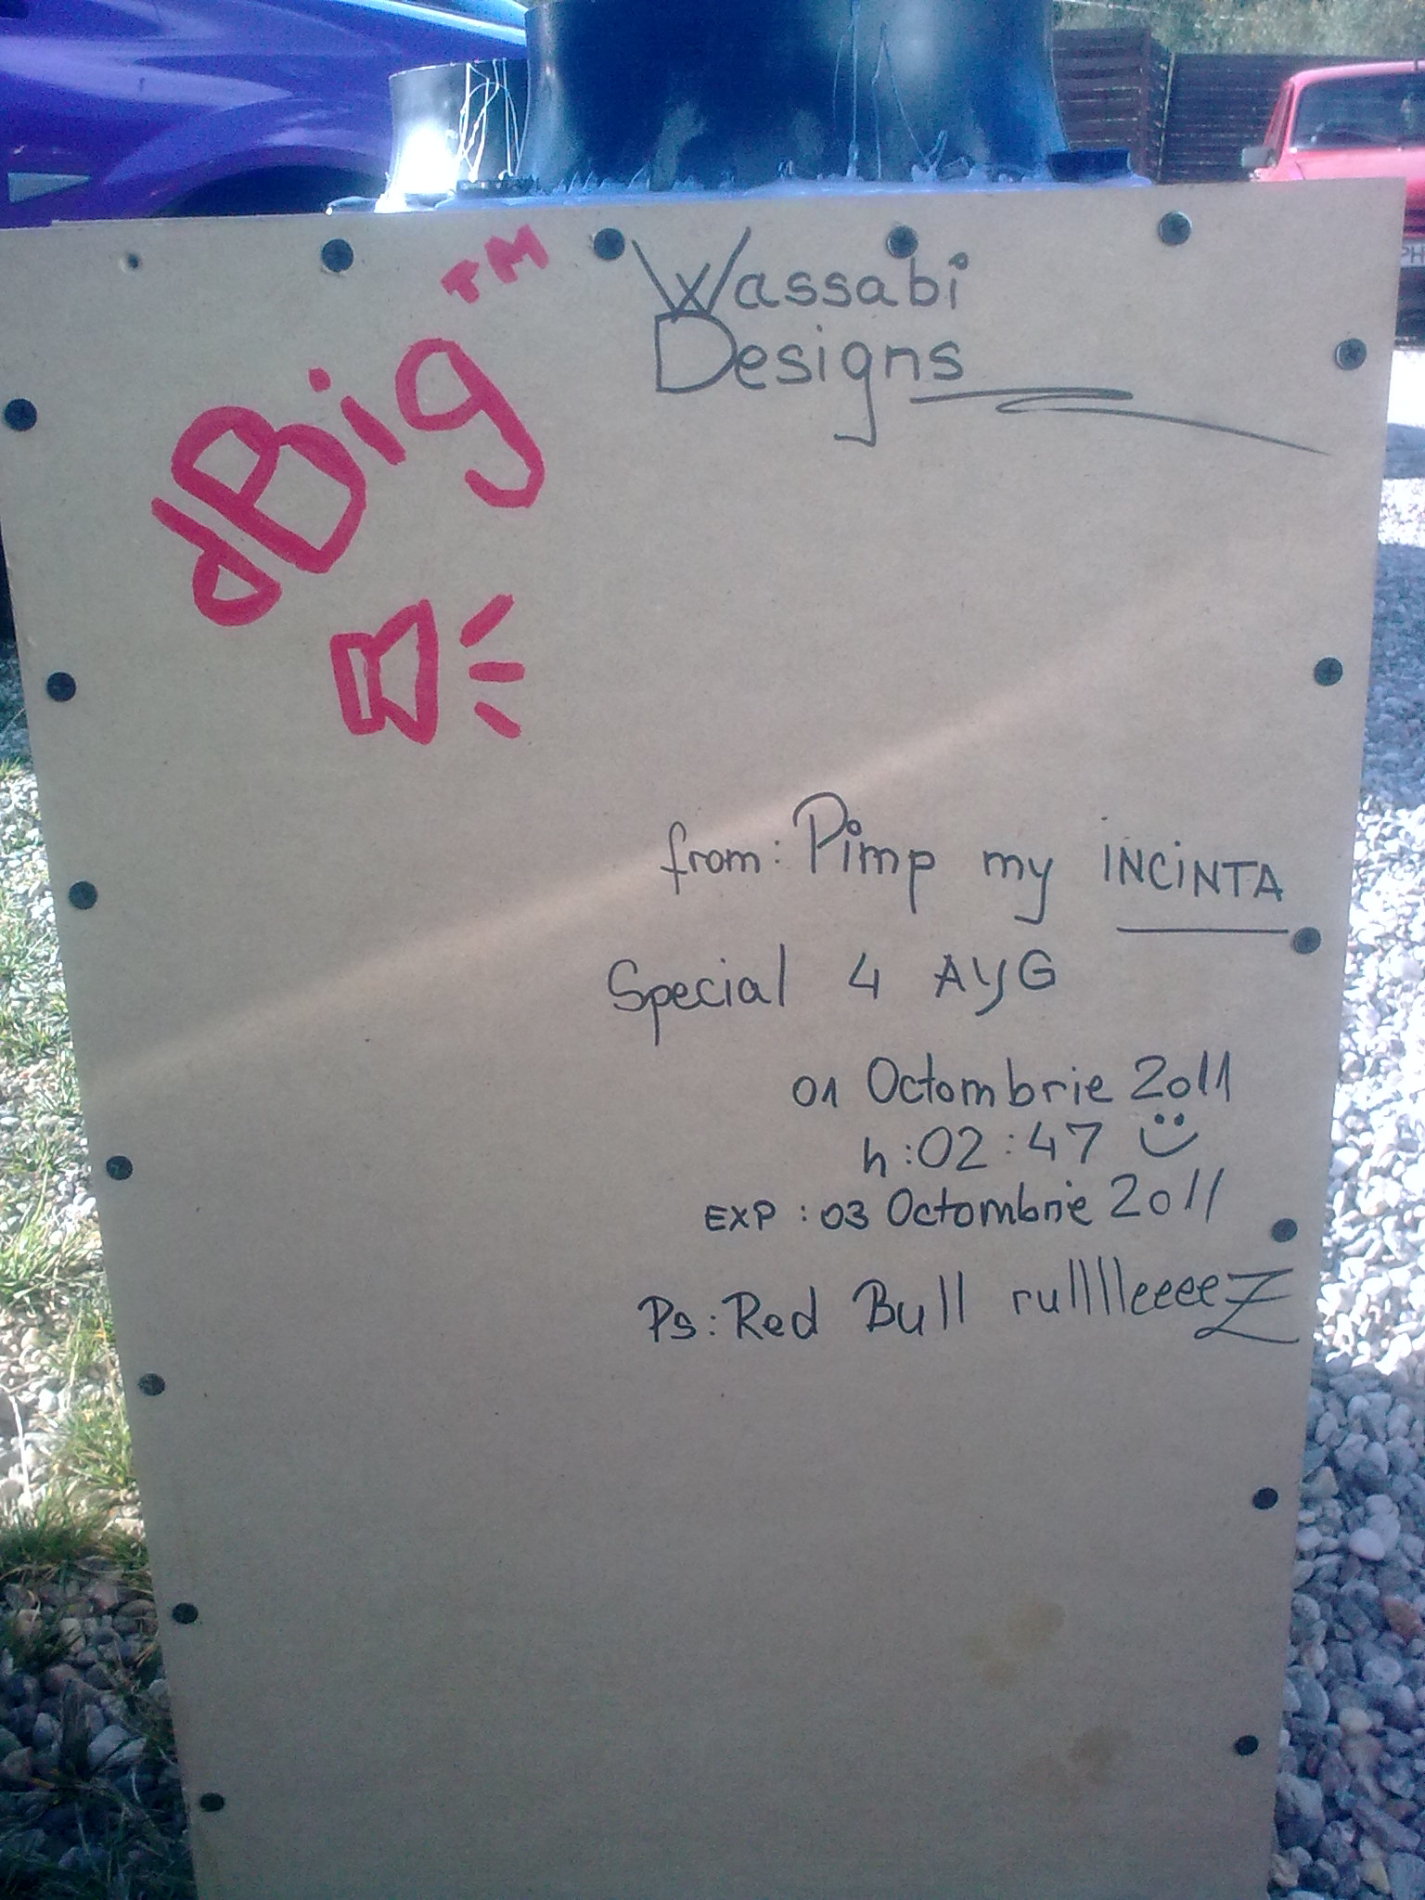 dBig TM
Wassabi
Designs
from: Pimp my INCINTA
Special 4 AYG
01 Octombrie 2011
h:02:47
EXP : 03 Octombrie 2011
Ps: Red Bull rulllleeeeZ